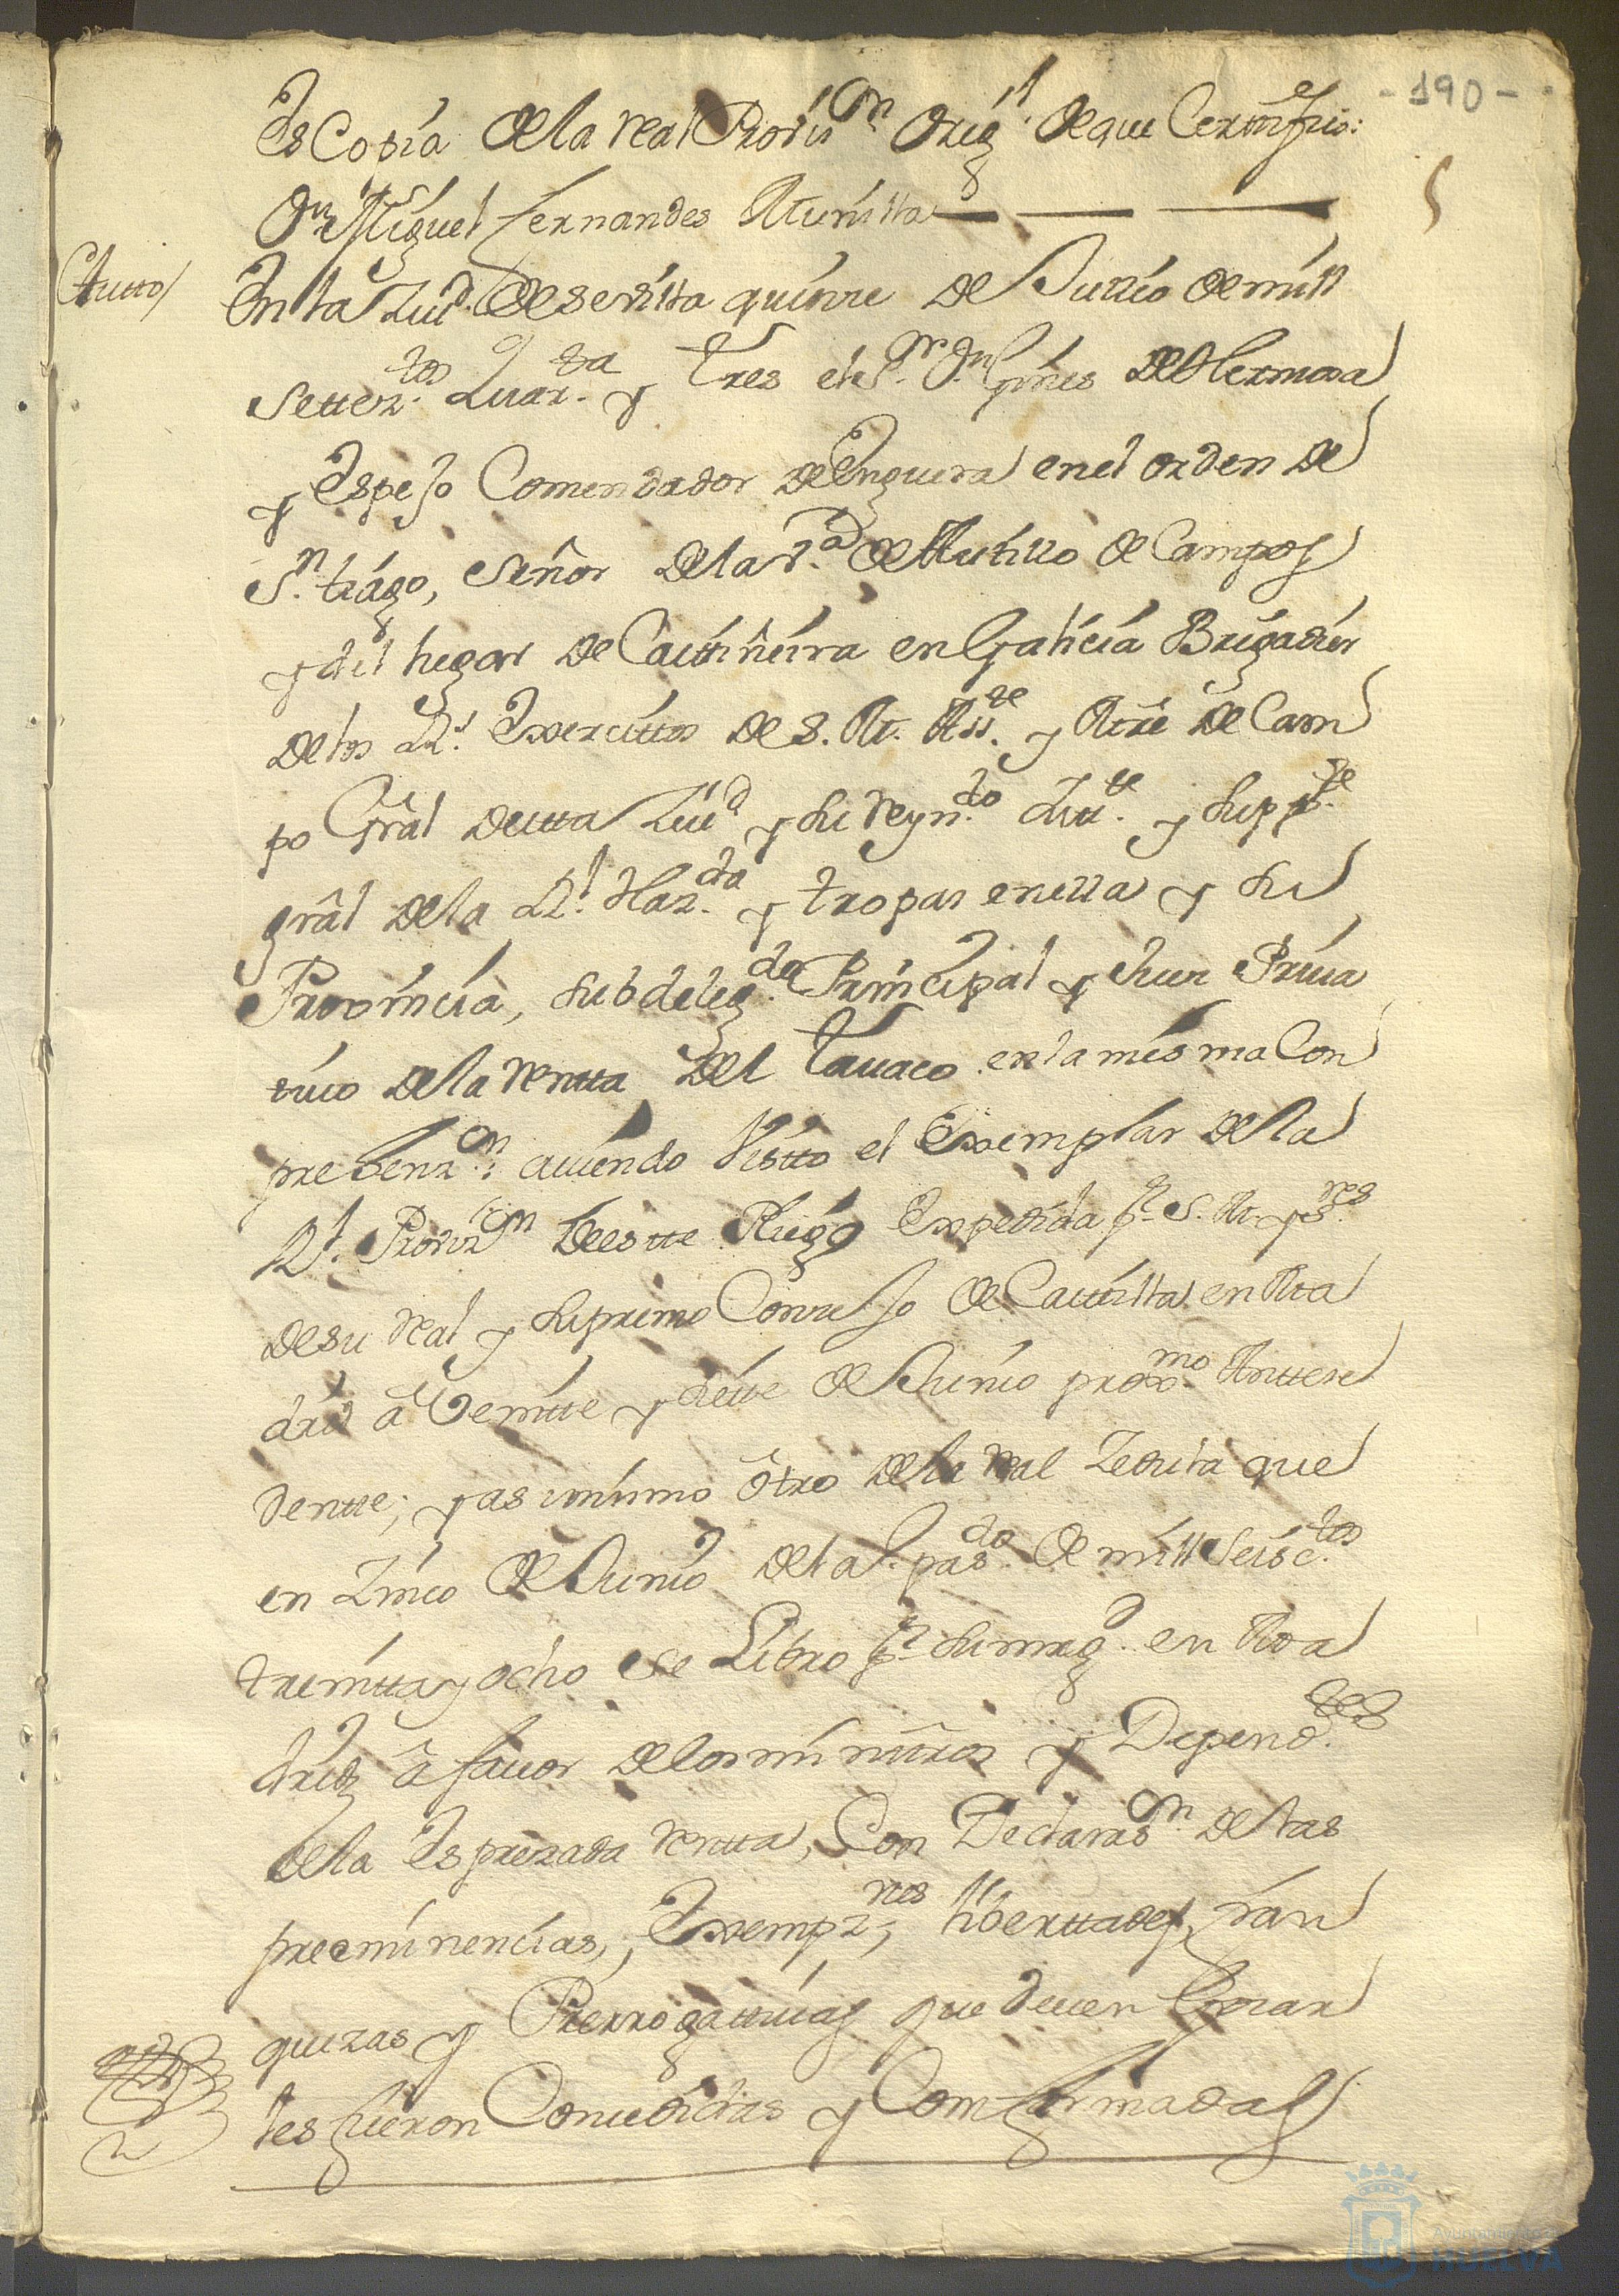 - 190 -
Es Copia de la real Provis.on Orig.l de que Certifico:
Dn. Miguel Fernandes Munilla
Autto/
En la Ziud. de sevilla quinze de Jullio de mill
Settez.tos Quar.ta y tres el S.r D.n Gines de Hermosa
y Espejo Comendador de Enguera en el orden de
S.n tiago, Señor de la V.a de Autillo de Campos
y del lugar de Castiñeira en Galicia Brigadier
de los R.s Exercittos de S. M. Ass.te y Mre de Cam
po Grâl de esta Ziud y su reyn.do Intt.te y Supp.te
grâl de la R.l Haz.da y tropas en ella y su
Provincia, subdeleg.do Principal y Juez Priva
tivo de la rentta del tavaco en la misma Com
prehenz.on; aviendo Vistto el Exemplar de la
R.l Proviz.on de estte Pliego Expedida p.r S. M. y s.res
de su real y supremo Consejo de Casttilla en Ma
drid â Veintte y siette de Junio prox.mo Anttese
dentte; y as imismo ôtro de la real Zedula que
en Zinco de Junio del a.o pas.do de mill Seisc.tos
treintta y ocho se Libro p.r su mag.d en Ma
drid â favor de los ministros y Depend.tes
de la Esprezada rentta, Con Declaras.on de las
preeminencias, Exempz.nes, liberttades, fran
quezas y Prerrogattivas que deven Gozar
les fueron Consedidas y Comfirmadas
Ayuntamiento
HUELVA